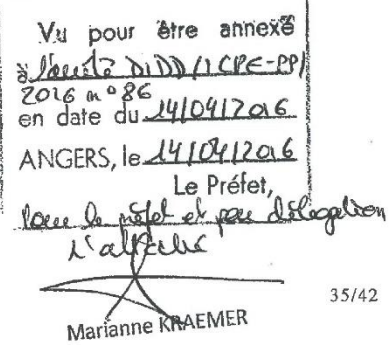 Vu pour être annexé
à l'arrêté DIDD/ICPE-PP/
2016 n° 86
en date du 14/04/2016
ANGERS, le 14/04/2016
Le Préfet,
Pour le préfet et par délégation
L'attaché
Marianne KRAEMER
35/42